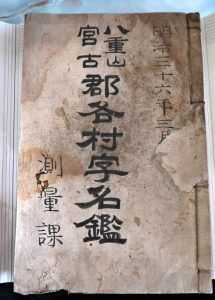 明治三十六年三月
八重山
宮古
郡各村字名鑑
測量課